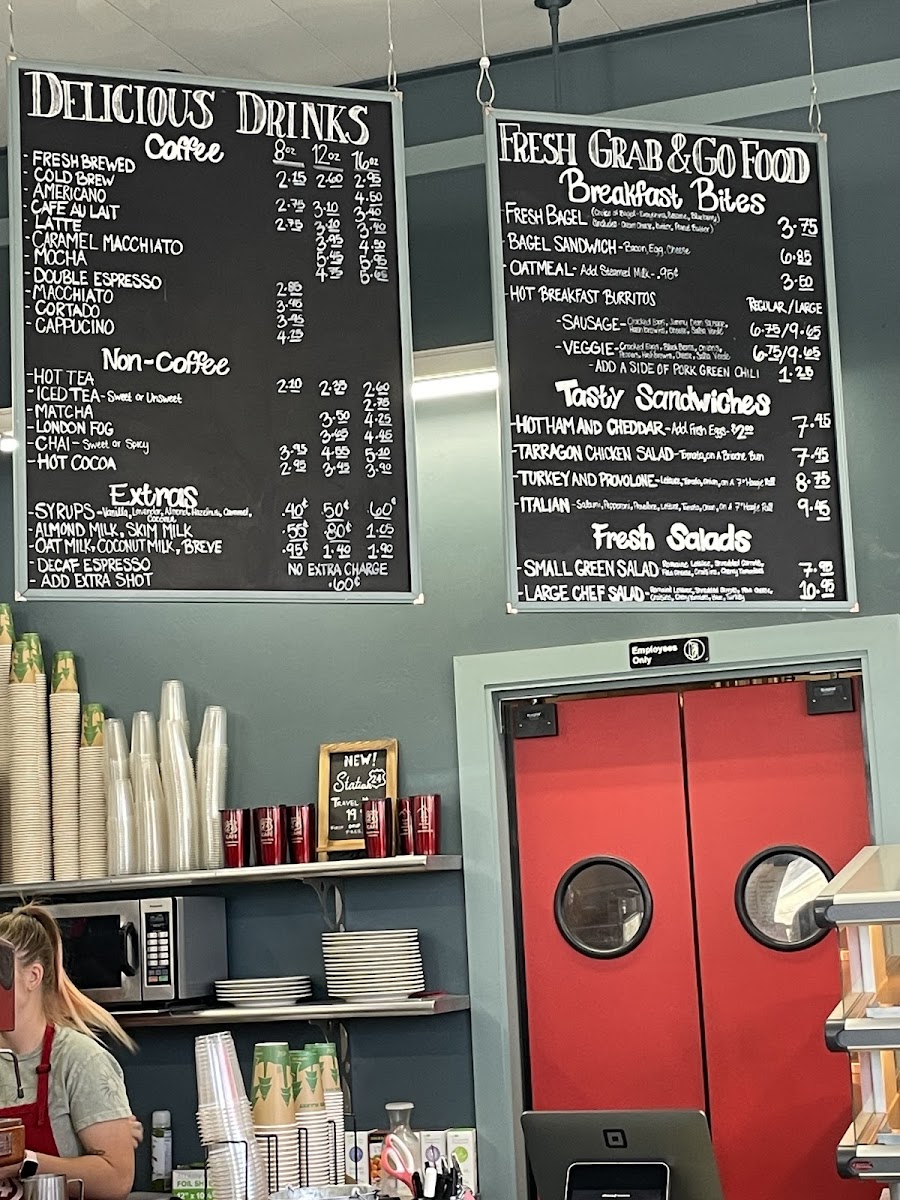 DELICIOUS DRINKS
Coffee 8oz 12oz 16oz
- FRESH BREWED 2.15 2.60 2.95
- COLD BREW 4.50
- AMERICANO 2.75 3.10 3.40
- CAFE AU LAIT 2.75 3.10 3.40
- LATTE 3.95 4.50
- CARAMEL MACCHIATO 5.45
- MOCHA 4.75
- DOUBLE ESPRESSO 2.85
- MACCHIATO 3.95
- CORTADO 3.95
- CAPPUCINO 4.25
Non-Coffee
- HOT TEA 2.10 2.35 2.60
- ICED TEA - Sweet or Unsweet 2.75
- MATCHA 3.50 4.25
- LONDON FOG 3.65 4.45
- CHAI - Sweet or Spicy 3.95 4.55 5.10
- HOT COCOA 2.95 3.45 3.90
Extras
- SYRUPS - Vanilla, Lavender, Almond, Hazelnut, Caramel, .40¢ 50¢ 60¢
Coconut
- ALMOND MILK, SKIM MILK .55¢ .80¢ 1.05
- OAT MILK, COCONUT MILK, BREVE .95¢ 1.40 1.90
- DECAF ESPRESSO NO EXTRA CHARGE
- ADD EXTRA SHOT .60¢
FRESH GRAB & GO FOOD
Breakfast Bites
- FRESH BAGEL (Choice of Bagel - Everything, Sesame, Blueberry) 3.75
(Includes - Cream Cheese, Butter, Peanut Butter)
- BAGEL SANDWICH - Bacon, Egg, Cheese 6.85
- OATMEAL - Add Steamed Milk - .95¢ 3.50
- HOT BREAKFAST BURRITOS REGULAR / LARGE
- SAUSAGE - Cracked Eggs, Jimmy Dean Sausage, 6.75/9.65
Hashbrowns, Cheese, Salsa Verde
- VEGGIE - Cracked Eggs, Black Beans, Onions, 6.75/9.65
Peppers, Hashbrowns, Cheese, Salsa Verde
- ADD A SIDE OF PORK GREEN CHILI 1.25
Tasty Sandwiches
- HOT HAM AND CHEDDAR - Add Fresh Eggs - $2.00 7.45
- TARRAGON CHICKEN SALAD - Tomato, on A Brioche Bun 7.45
- TURKEY AND PROVOLONE - Lettuce, Tomato, Onion, on A 7" Hoagie Roll 8.75
- ITALIAN - Salami, Pepperoni, Provolone, Lettuce, Tomato, Onion, on A 7" Hoagie Roll 9.45
Fresh Salads
- SMALL GREEN SALAD Romaine Lettuce, Shredded Carrots, 7.95
Feta Cheese, Croutons, Cherry Tomatoes
- LARGE CHEF SALAD - 10.95
Employees
Only
NEW!
Station 24
TRAVEL
19
CAFE
FOIL SH
12" X 10